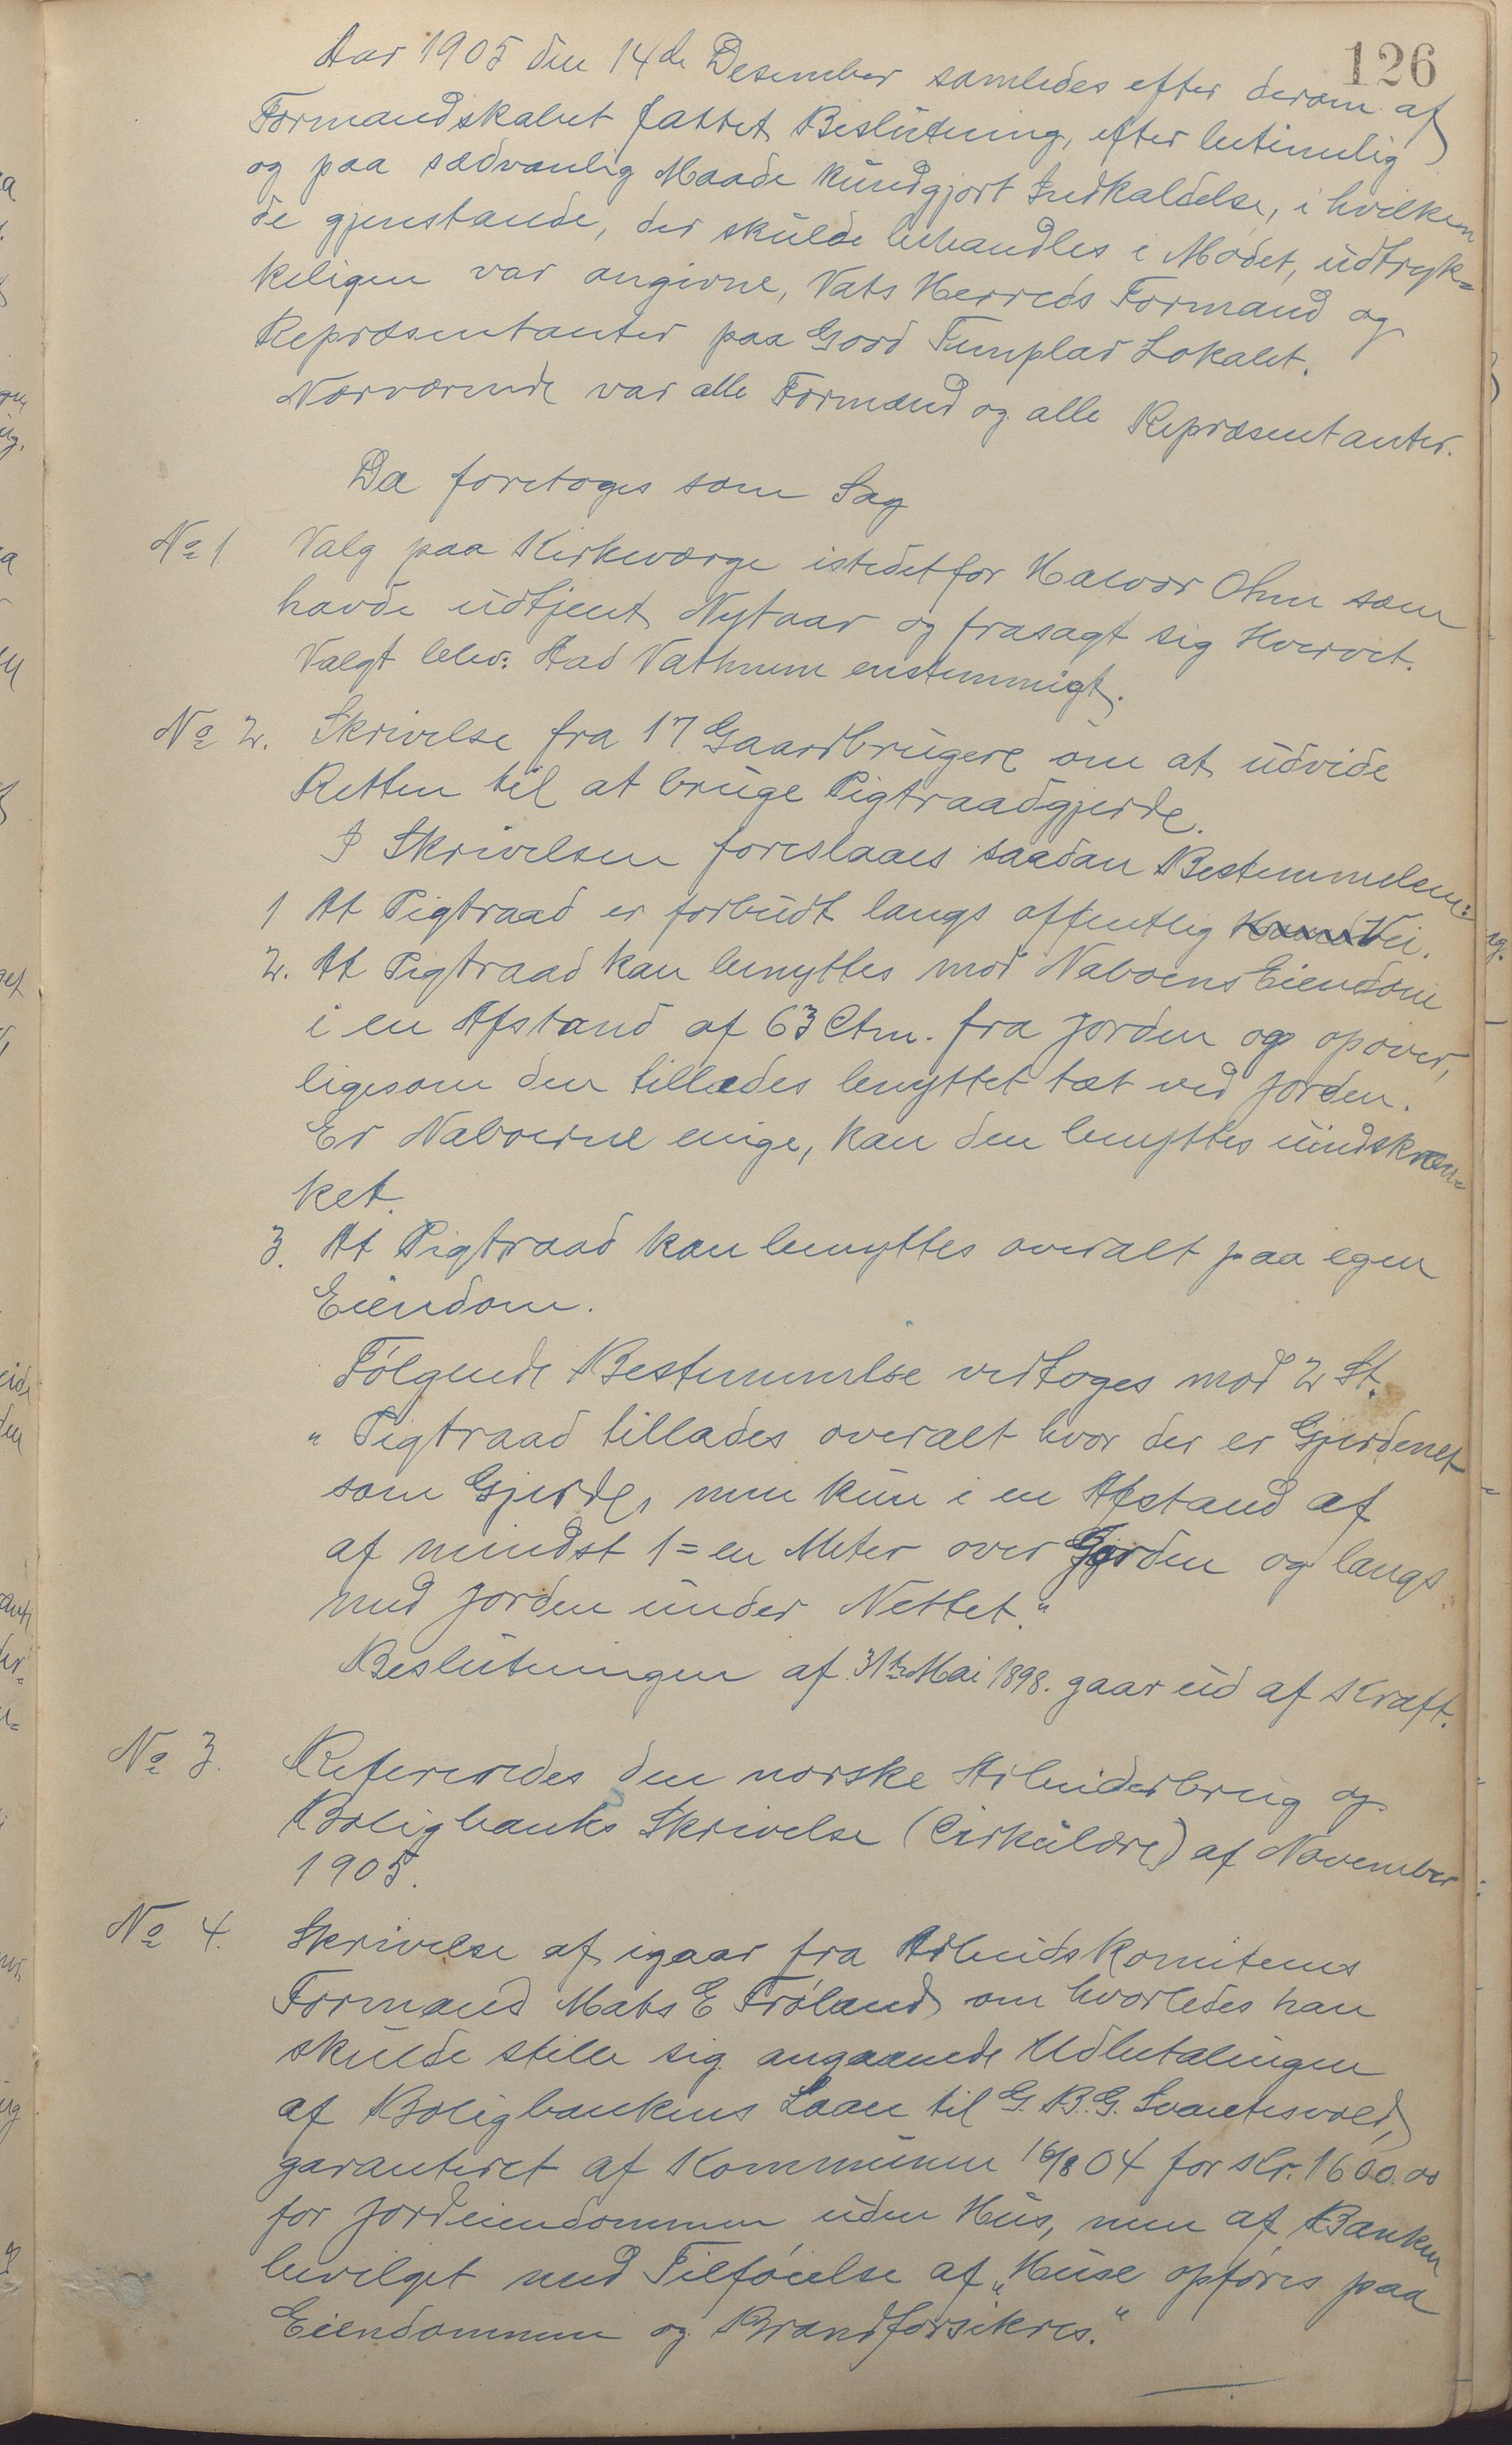 126
Aar 1905 den 14de Desember samledes efter derom af
Formandskabet fattet Beslutning, efter betimelig
og paa sædvanlig Maade kundgjort Indkaldelse, i hvilken
de gjenstande, der skulde behandles i Mødet, udtryk=
keligen var angivne, Vats Herreds Formænd og
Repræsentanter paa Good Templar Lokalet.
Nærværende var alle Formænd og alle Repræsentanter.
Da foretoges som Sag
No 1 Valg paa Kirkeværge istedetfor Halvor Ohm som
havde udtjent Nytaar og frasagt sig Hvervet.
Valgt blev: Aad Vathnem enstemmigt.
No 2. Skrivelse fra 17 Gaardbrugere om at udvide
Retten til at bruge Pigtraadgjerde.
I Skrivelsen foreslaaes saadan Bestemmelsen:
1 At Pigtraad er forbudt langs offentlig Vei.
2. At Pigtraad kan benyttes mod Naboens Eiendom
i en Afstand af 63 Ctm. fra Jorden og opover,
ligesom den tillades benyttet tæt ved Jorden.
Er Naboerne enige, kan den benyttes uindskræn=
ket.
3. At Pigtraad kan benyttes overalt paa egen
Eiendom.
Følgende Bestemmelse vedtoges mod 2 St.
"Pigtraad tillades overalt hvor der er Gjerdenet
som Gjerde, men kun i en Afstand af
af mindst 1 = en Meter over Jorden og langs
med Jorden under Nettet."
Beslutningen af 31te Mai 1898. gaar ud af Kraft.
No 3. Refereredes den norske Arbeiderbrug og
Boligbanks Skrivelse (Cirkulære) af November
1905.
No 4. Skrivelse af igaar fra Arbeidskomiteens
Formand Mats E Frøland om hvorledes han
skulde stille sig angaaende Udbetalingen
af Boligbankens Laan til G. B. G. Svantesvold,
garanteret af Kommunen 16/8 04 for Kr. 1600.00
for Jordeiendommen uden Hus, men af Banken
bevilget med Tilføielse af "Huse opføres paa
Eiendommen og Brandforsikres."